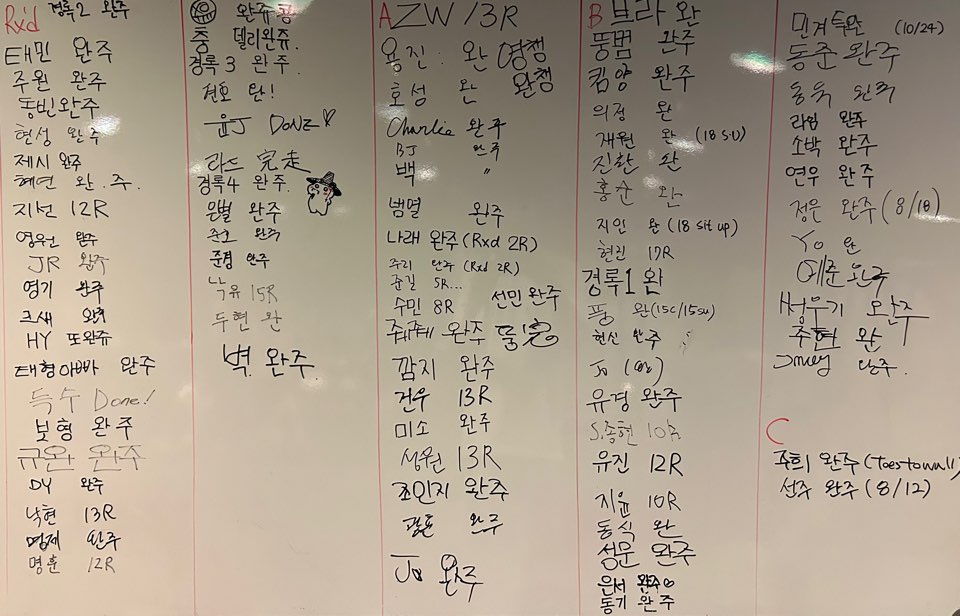 Rx'd 경록2 완주
태민 완주
주원 완주
동빈 완주
현성 완주
제시 완주
혜연 완.주.
지선 12R
영원 완주
JR 완주
영기 완주
크새 완주
HY 또완쥬
태형아빠 완주
득수 Done!
보형 완주
규완 완주
DY 완주
낙현 13R
명제 완주
명훈 12R
완쥬
춤 델리완쥬.
경록3 완주.
건호 완!
윤J DONE♡
라드 完走
경록4 완주.
은별 완주
준호 완주
준경 완주
낙유 15R
두현 완
벽. 완주
A ZW 13R
용진: 완 영쨈
호성 완 완쨈
Charlie 완주
BJ 완주
백 〃
범열 완주
나래 완주 (Rxd 2R)
주리 완주 (Rxd 2R)
준길 5R...
수민 8R 선민 완주
완주
깜지 완주
건우 13R
미소 완주
성원 13R
조인지 완주
완주
Jo 완주
B 브라 완
뚱범 완주
킴양 완주
의정 완
재원 완 (18 SU)
진환 완
홍순 완
지인 완 (18 sit up)
현진 17R
경록1 완
퐁 완 (15c/15su)
현신 완주
Jo (완)
유경 완주
S.종현 10R
유진 12R
지윤 10R
동식 완
성문 완주
은서 완주♡
동기 완주
민겨 독완 (10/24)
동준 완주
동욱 완주
라임 완주
소박 완주
연우 완주
정은 완주 (8/18)
Yo 완
예준 완주
완주
주현 완
완주.
C
주희 완주 (Toestowall)
선주 완주 (8/12)